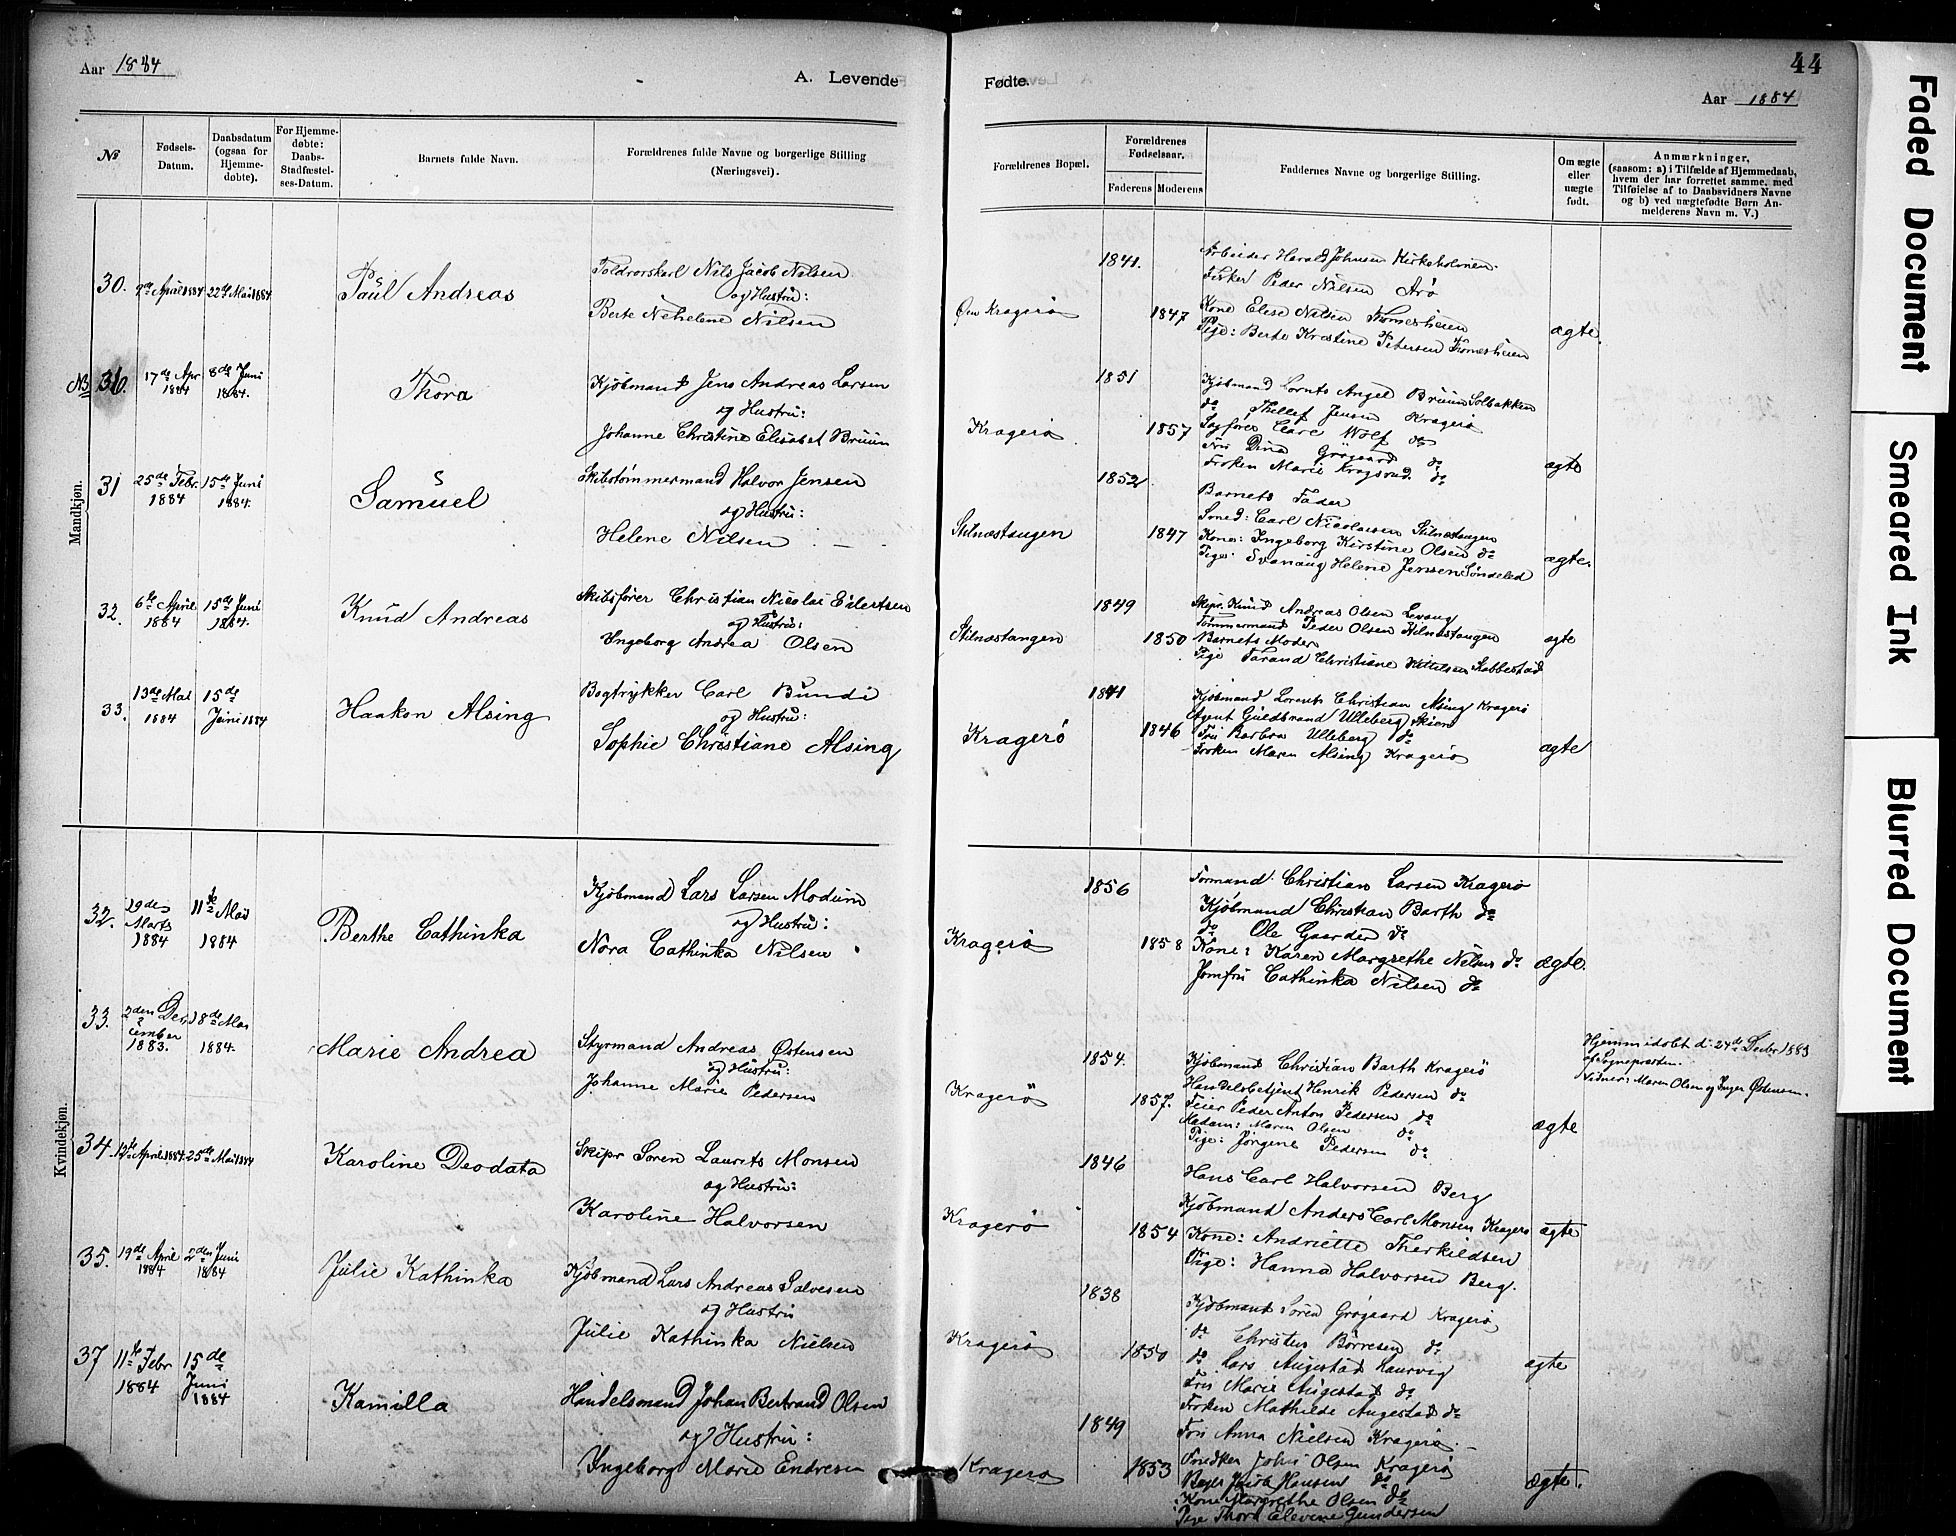 Aar 1884
A. Levende
Mandkjøn.
Kvindekjøn.
№
Fødsels-
Datum.
Daabsdatum
(ogsaa for
Hjemme-
døbte).
For Hjemme-
døbte:
Daabs-
Stadfæstel-
ses-Datum.
Barnets fulde Navn.
Forældrenes fulde Navne og borgerlige Stilling
(Næringsvei).
30. April 1884 22de Mai 1884 Paul Andreas
Toldrorskarl Nils Jacob Nilsen
og Hustru:
Berte Nilsen
NB 30. 17de Apr 1884
8de Juni 1884.
Thora
Kjøbmand Jens Andreas Larsen
og Hustru:
Johanne Christine Elisabet Bruun
31 25de Febr. 1884
15de Juni 1884.
Samuel
Skibstømmermand Halvor Jensen
og Hustru:
Helene Nilsen
32. 6te April 1884
15de Juni 1884.
Knud Andreas
Skibsfører Christian Nicolai Eilertsen
og Hustru:
Ingeborg Andrea Olsen
33. 13de Mai 1884
15de Juni 1884
Haakon Alsing
Bogtrykker Carl Bundi
og Hustru:
Sophie Christiane Alsing
32. 29de Marts 1884
11te Mai 1884
Berthe Cathinka
Kjøbmand Lars Larsen Modum
og Hustru:
Nora Cathinka Nilsen
33. 2den December 1883.
18de Mai 1884.
Marie Andrea
Styrmand Andreas Østensen
og Hustru:
Johanne Marie Pedersen
34. 12te April 1884 25de Mai 1884
Karoline Deodata
Skipr Søren Laurits Monsen
og Hustru:
Karoline Halvorsen
35. 19de April 1884
2den Juni 1884
Julie Kathinka
Kjøbmand Lars Andreas Salvesen
og Hustru
Julie Kathinka Nielsen
37 11te Febr 1884
15de Juni 1884
Kamilla
Handelsmand Johan Bertrand Olsen
og Hustru:
Ingeborg Marie Endresen
Fødte.
44
Aar 1884
Forældrenes Bopæl.
Forældrenes
Fødselsaar.
Faderens Moderens
Faddernes Navne og borgerlige Stilling.
Om ægte
eller
uægte
født.
Anmærkninger,
(saasom: a) i Tilfælde af Hjemmedaab,
hvem der har forrettet samme, med
Tilføielse af to Daabsvidners Navne
og b) ved uægtefødte Børn An-
melderens Navn m. V.)
Øen Kragerø
1841.
1847
Arbeider Harald Johnsen Kirkeholmen.
Fisker Peder Nilsen Arø
Kone Elese Nilsen
Pige: Berte Kristine Petersen
ægte.
Kragerø
1851
1857
Kjøbmand Lornts Angel Bruun Solbakken
do Thellef Jensen Kragerø
Sagfører Carl Wolf do
Fru Dina Grøgaard do
Frøken Marie do
ægte
Stilnæstangen
1852
1847
Barnets Fader
Carl Nicolaisen Stilnæstangen
Kone: Ingeborg Kirstine Olsen do
Pige: Svanaug Helene Jensen Søndeled
ægte.
Stilnæstangen
1849
1850
Skipr. Knud Andreas Olsen Levang
Tømmermand Peder Olsen Stilnæstangen
Barnets Moder
Pige Tarand Christiane Kittelsen
ægte
Kragerø
1841
1846
Kjøbmand Lorents Christian Alsing Kragerø
Agent Guldbrand Ulleberg Skien
Fru Barbra Ulleberg do
Frøken Maren Alsing Kragerø
ægte
Kragerø
1856
1858
Formand Christian Larsen Kragerø
Kjøbmand Christian Barth do
do Ole Gaarder do
Kone: Karen Margrethe Nelsen do
Jomfru Cathinka Nilsen do
ægte.
Kragerø
1854.
1857.
Kjøbmand Christian Barth Kragerø
Handelsbetjent Henrik Pedersen do
Feier Peder Anton Pedersen do
Madam: Maren Olsen do
Pige: Jørgene Pedersen do
ægte
Hjemmedøbt d. 24de Decbr 1883
af Sognepræsten.
Vidner: Maren Olsen og Inger Østensen.
Kragerø
1846
1854
Hans Carl Halvorsen Berg
Kjøbmand Anders Carl Monsen Kragerø
Kone: Andriette Therkildsen
Pige: Hanna Halvorsen Berg.
ægte
Kragerø
1838
1850
Kjøbmand Søren Grøgaard Kragerø
do Christus Børresen do
do Lars Augestad Laurvig
Fru Marie Augestad do
Frøken Mathilde Augestad do
Fru Anna Nielsen Kragerø
ægte
Kragerø
1849
1853
Snedker John Olsen Kragerø
Jacob Hansen do
Kone Margrethe Olsen do
Pige Thora Elevine Gundersen
ægte.
Faded Document
Smeared Ink
Blurred Document